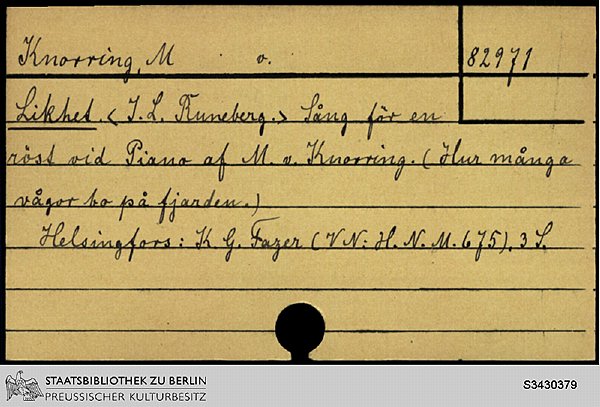 Knorring, M v. 82971
Likhet. < J. L. Runeberg. > Sång för en
röst vid Piano af M. v. Knorring. (Hur många
vågor bo på fjarden.)
Helsingfors: K. G. Fazer (VN: H. N. M. 675). 3 S.
STAATSBIBLIOTHEK ZU BERLIN
PREUSSISCHER KULTURBESITZ
S3430379